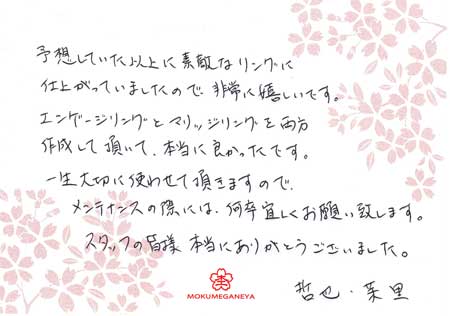 予想していた以上に素敵なリングに
仕上がっていましたので、非常に嬉しいです。
エンゲージリングとマリッジリングを両方
作成して頂いて、本当に良かったです。
一生大切に使わせて頂きますので、
メンテナンスの際には、何卒宜しくお願い致します。
スタッフの皆様 本当にありがとうございました。
MOKUMEGANEYA
哲也・茉里